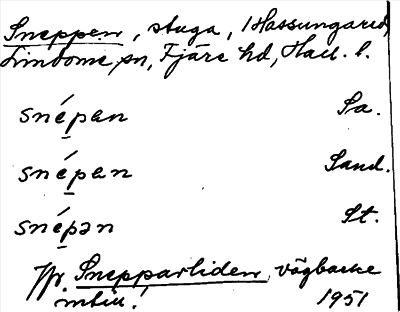 Sneppen, stuga, Hassungared,
Lindome sn, Fjäre hd, Hall. l.
snépan Sa.
snépan Sand.
snépən St.
Jfr. Snepparliden, vägbacke
1951